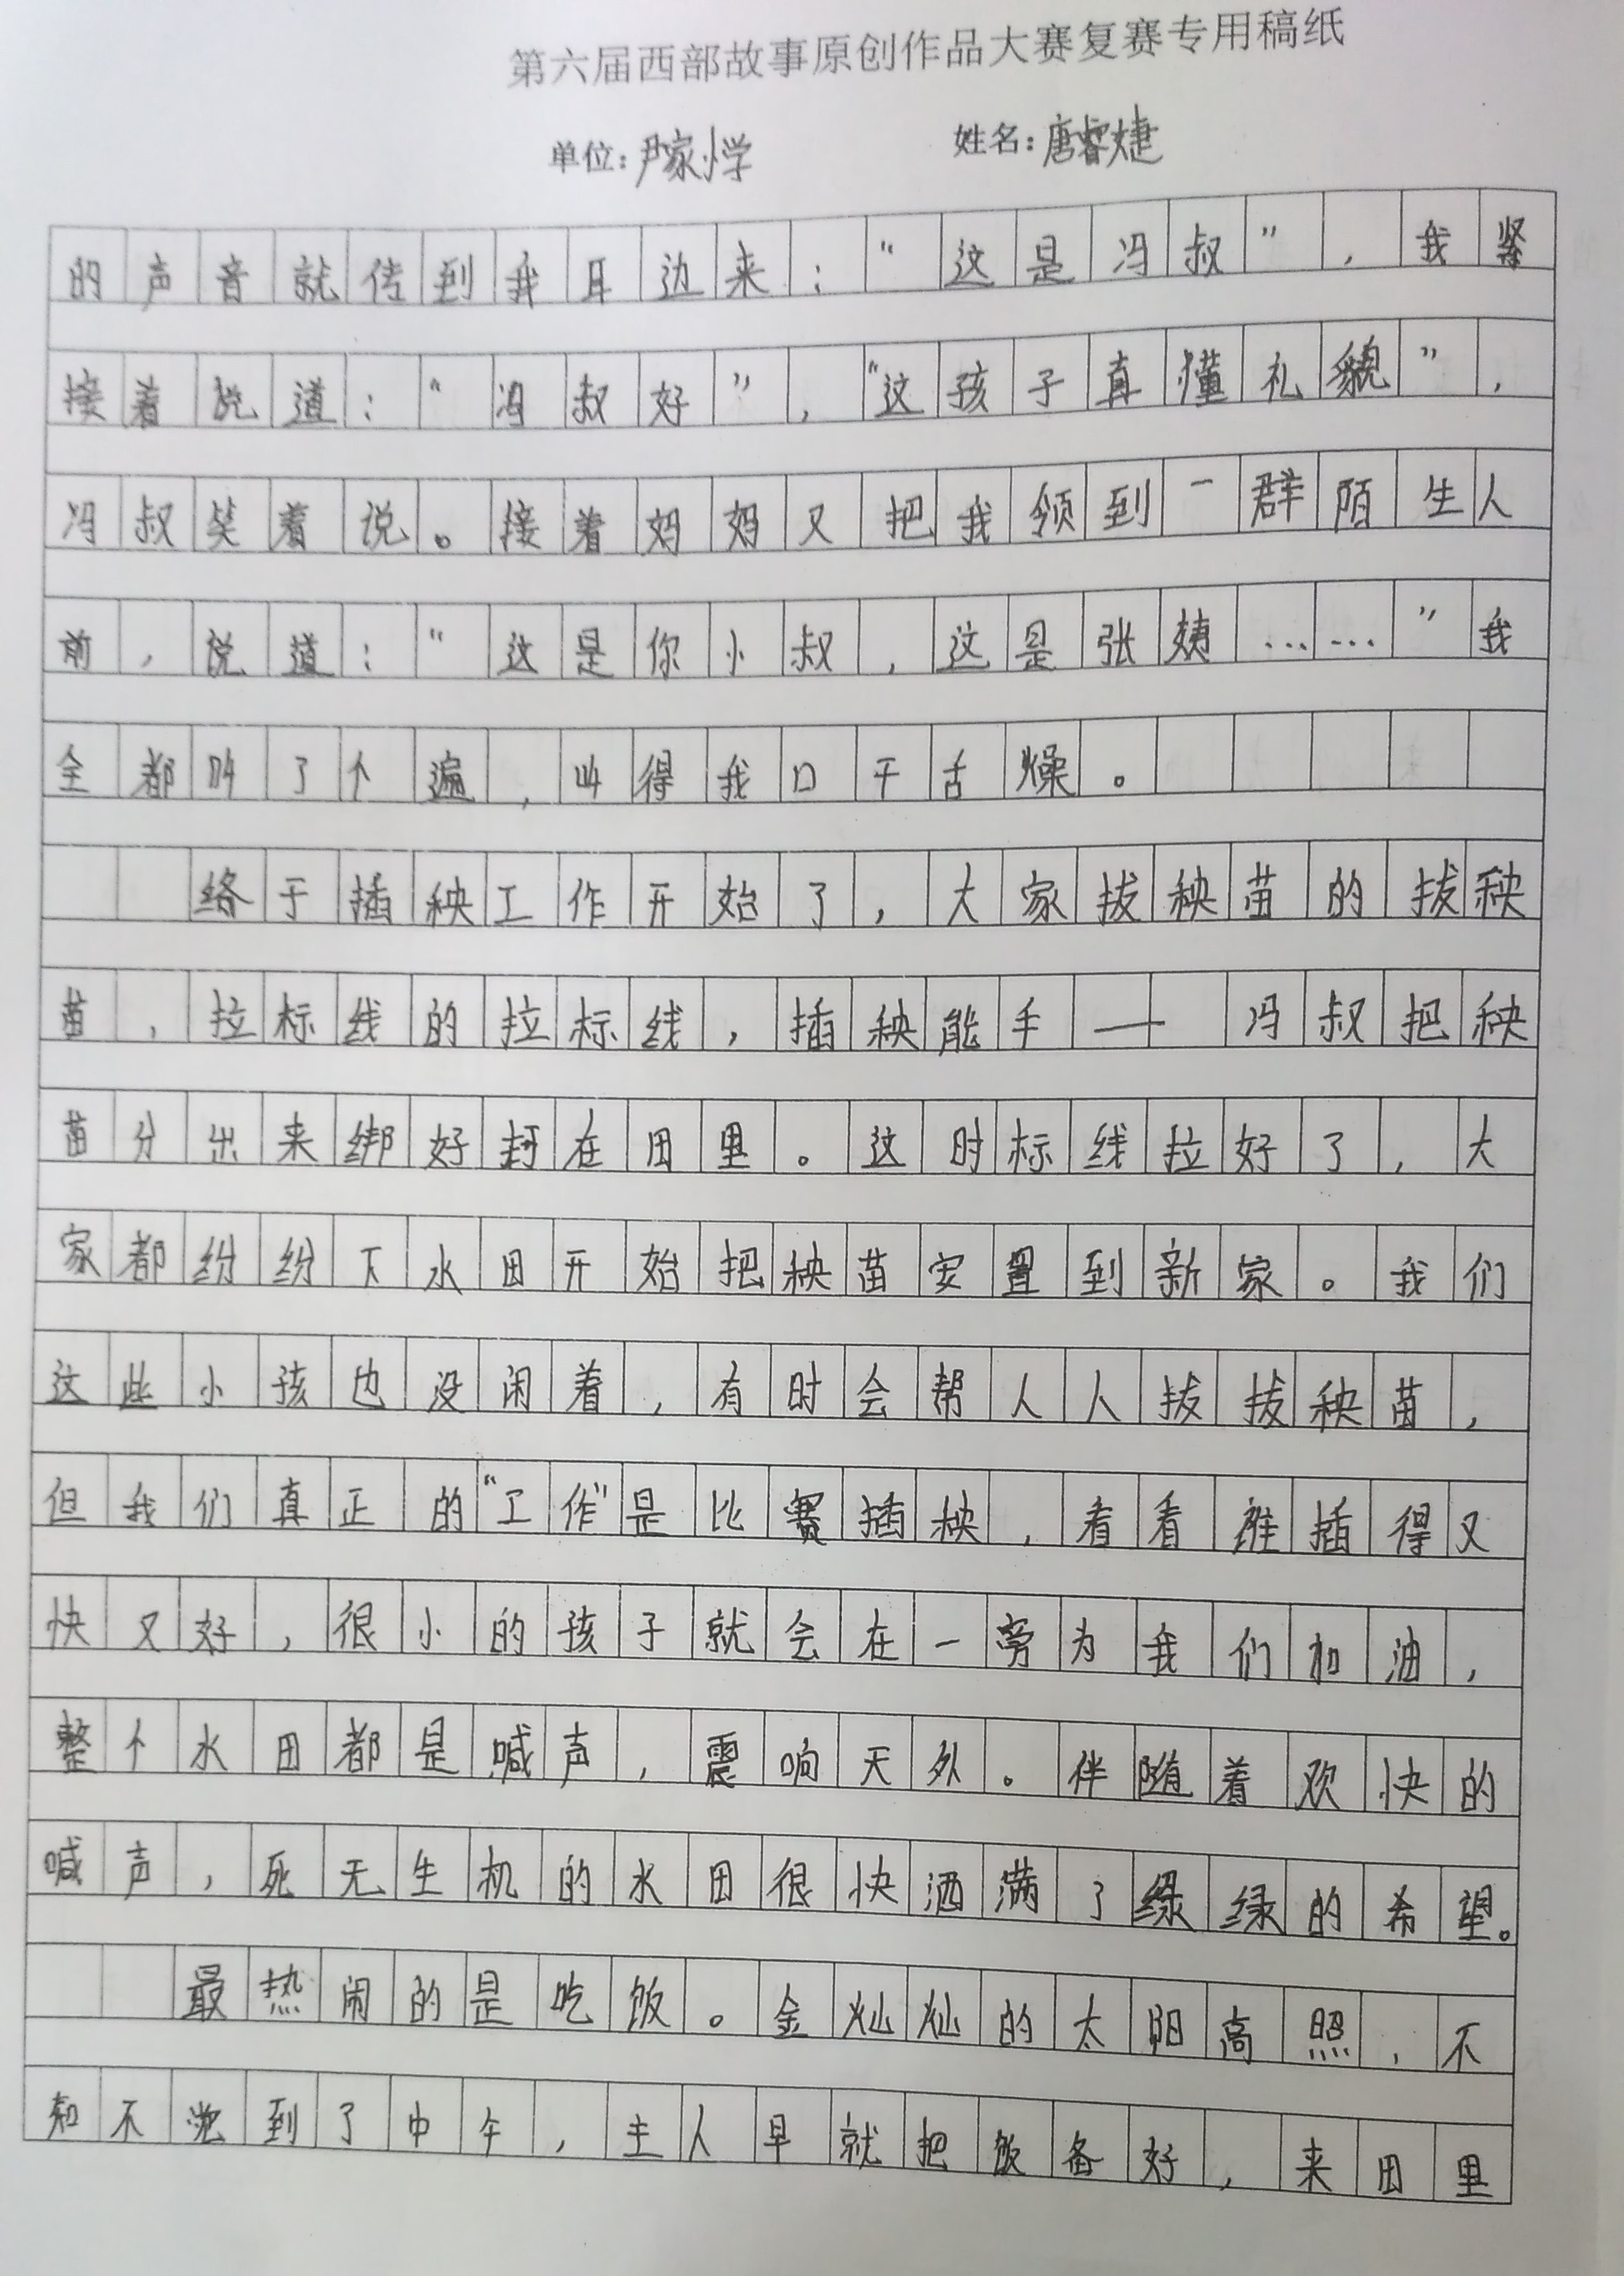 第六届西部故事原创作品大赛复赛专用稿纸
单位：尹家小学 姓名：唐睿婕
的声音就传到我耳边来：“这是冯叔”，我紧
接着说道：“冯叔好”，“这孩子真懂礼貌”，
冯叔笑着说。接着妈妈又把我领到一群陌生人
前，说道：“这是你小叔，这是张姨……”我
全都叫了个遍，叫得我口干舌燥。
终于插秧工作开始了，大家拔秧苗的拔秧
苗，拉标线的拉标线，插秧能手——冯叔把秧
苗分出来绑好封在田里。这时标线拉好了，大
家都纷纷下水田开始把秧苗安置到新家。我们
这些小孩也没闲着，有时会帮人人拔拔秧苗，
但我们真正的“工作”是比赛插秧，看看谁插得又
快又好，很小的孩子就会在一旁为我们加油，
整个水田都是喊声，震响天外。伴随着欢快的
喊声，死无生机的水田很快洒满了绿绿的希望。
最热闹的是吃饭。金灿灿的太阳高照，不
知不觉到了中午，主人早就把饭备好，来田里